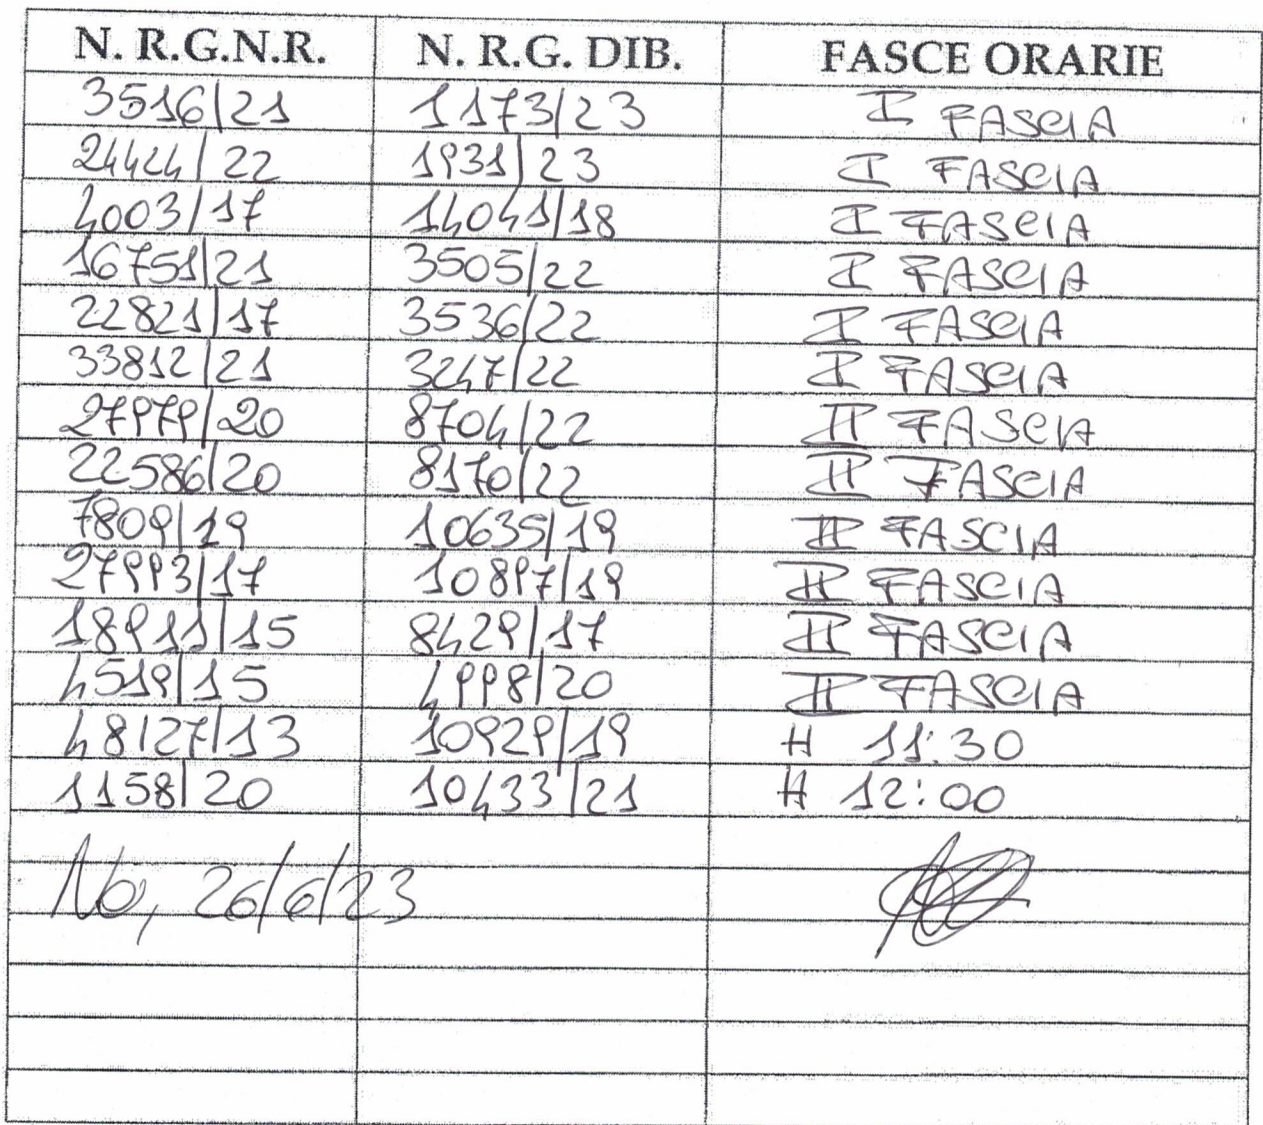 N. R.G.N.R. N. R.G. DIB. FASCE ORARIE
3516/21 1173/23 I FASCIA
24424/22 1931/23 I FASCIA
4003/17 14041/18 I FASCIA
16751/21 3505/22 I FASCIA
22821/17 3536/22 I FASCIA
33812/21 3247/22 I FASCIA
27979/20 8704/22 II FASCIA
22586/20 8170/22 II FASCIA
7809/19 10635/19 II FASCIA
27993/17 10897/19 II FASCIA
18911/15 8429/17 II FASCIA
4519/15 4998/20 II FASCIA
48127/13 10929/19 H 11:30
1158/20 10433/21 H 12:00
26/6/23